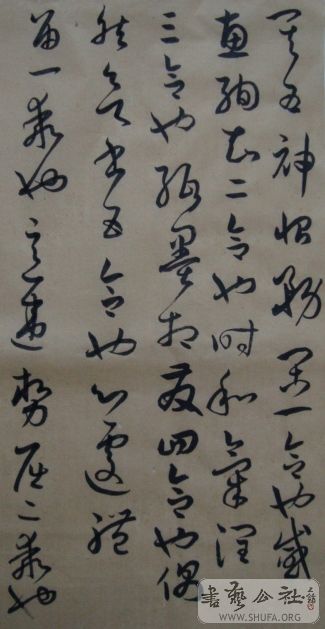 其五神怡務閑一合也感
惠徇知二合也時和氣潤
三合也紙墨相發四合也偶
然欲書五合也心遽體
留一乖也意違勢屈二乖也
書藝公社
WWW.SHUFA.ORG